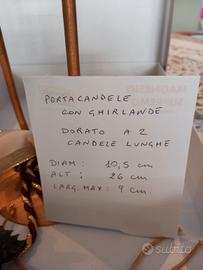 MAGNESIO
SUPREMO
PORTACANDELE
CON GHIRLANDE
DORATO A 2
CANDELE LUNGHE
DIAM: 10,5 cm
ALT: 26 cm
LARG. MAX: 9 cm
Subito